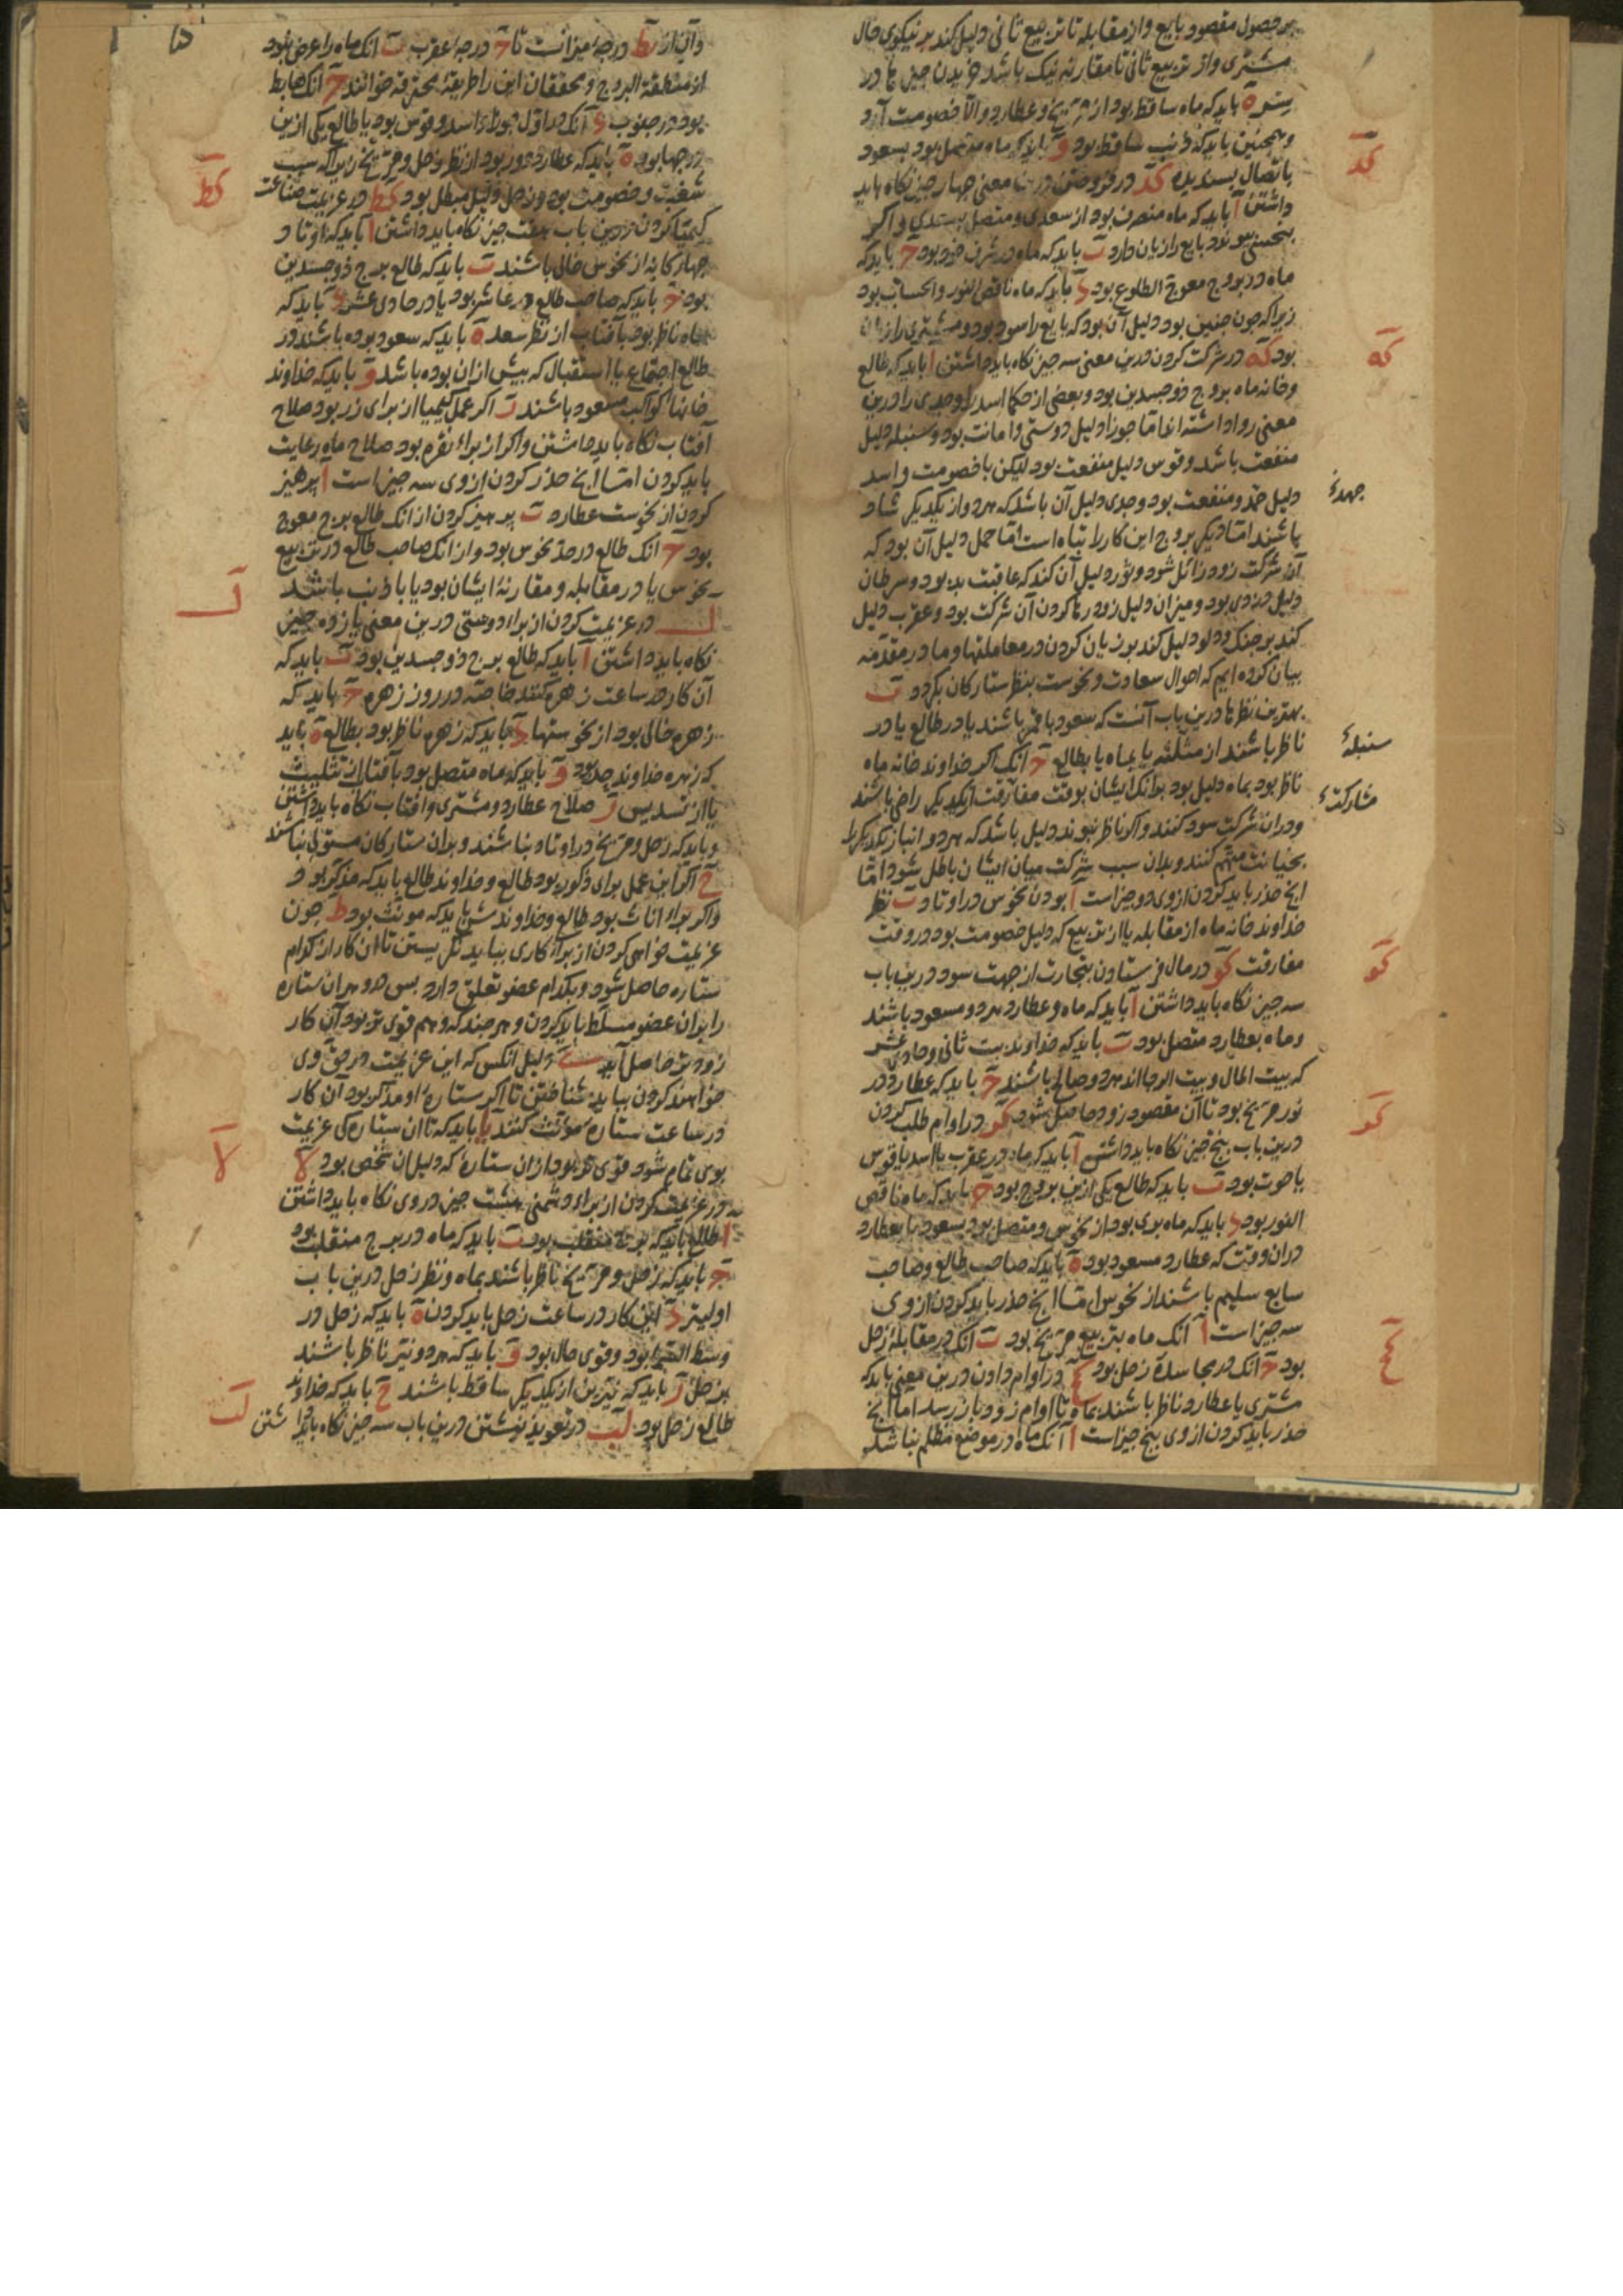 بر حصول مقصود بایع و از مقابله تا تربیع ثانی دلیل کند بر نیکوی حال
مشتری و از تربیع ثانی تا مقارنه نیک باشد خریدن جیزها در
ستر ه باید که ماه ساقط بود از مریخ و عطارد و الا خصومت آرد
و همجنین باید که ذنب ساقط بود و باید که ماه متصل بود بسعود
باتصال بسندیده کد در فروختن درین معنی جهار جیز نکاه باید
داشتن ا باید که ماه منصرف بود از سعدی و متصل بسعدی و اکر
بنحسی بیوندد بایع را زیان دارد ب باید که ماه در شرف خود بود ج باید که
ماه در بروج معوج الطلوع بود د باید که ماه ناقص النور والحساب بود
زیرا که جون جنین بود دلیل آن بود که بایع را سود بود و مشتری را زیان
بود که در شرکت کردن درین معنی سه جیز نکاه باید داشتن ا باید که طالع
و خانه ماه بروج ذوجسدین بود و بعضی از حکما اسد را و جدی را درین
معنی روا داشته اند اما جوزا دلیل دوستی و امانت بود و سنبله دلیل
منفعت باشد و قوس دلیل منفعت بود لیکن با خصومت و اسد
دلیل حمد و منفعت بود و جدی دلیل آن باشد که هر دو از یکدیکر شاد
باشند اما دیکر بروج این کار را تباه است اما حمل دلیل آن بود که
آن شرکت زود زائل شود و ثور دلیل آن کند که عاقبت بد بود و سرطان
دلیل دزدی بود و میزان دلیل زود رها کردن آن شرکت بود و عقرب دلیل
کند بر جنک و دلو دلیل کند بر زیان کردن در معاملتها و ما در مقدمه
بیان کرده ایم که احوال سعادت و نحوست بنظر ستارکان بکردد ب
بهترین نظرها درین باب آنست که سعود با قمر باشند یا در طالع یا در
ناظر باشند از مثلثه یا بماه یا بطالع ج انک اکر خداوند خانه ماه
ناظر بود بماه دلیل بود بر انک ایشان بوقت مفارقت از یکدیکر راضی باشند
و دران شرکت سود کنند و اکر ناظر نبوند دلیل باشد که هر دو انباز یکدیکر را
بخیانت متهم کنند و بدان سبب شرکت میان ایشان باطل شود اما
انج حذر باید کردن ازوی دو جیز است ا بودن نحوس در اوتاد ب نظر
خداوند خانه ماه از مقابله یا از تربیع که دلیل خصومت بود در وقت
مفارقت کو در مال فرستادن بتجارت از جهت سود درین باب
سه جیز نکاه باید داشتن ا باید که ماه و عطارد هر دو مسعود باشند
و ماه بعطارد متصل بود ب باید که خداوند بیت ثانی و حادی عشر
که بیت المال و بیت الرجا اند هر دو صالح باشند ج باید که عطارد در
نور مریخ بود تا آن مقصود زود حاصل شود کز در اوام طلب کردن
درین باب بنج جیز نکاه باید داشتن ا باید که ماه در عقرب یا اسد یا قوس
یا حوت بود ب باید که طالع یکی ازین بروج بود ج باید که ماه ناقص
النور بود د باید که ماه بری بود از نحوس و متصل بود بسعود یا بعطارد
دران وقت که عطارد مسعود بود ه باید که صاحب طالع و صاحب
سابع سلیم باشند از نحوس اما انج حذر باید کردن ازوی
سه جیز است ا انک ماه بتربیع مریخ بود ب انک در مقابله زحل
بود ج انک در مجاسده زحل بود کح در اوام دادن درین معنی باید که
مشتری یا عطارد ناظر باشند بماه تا اوام زود باز رسد اما انج
حذر باید کردن ازوی بنج جیز است ا انک ماه در موضع مظلم نباشد
کد
که
جهدئ
سنبلهٔ
مشارکتئ
کو
کز
کح
و آن از یط درجهٔ میزانست تا ج درجهٔ عقرب ب انک ماه را عرض بود
از منطقة البروج و محققان این را طریقهٔ محترقه خوانند ج انک هابط
بود در جنوب د آنک در اول جوزا و اسد و قوس بود یا طالع یکی ازین
درجها بود ه باید که عطارد دور بود از نظر زحل و مریخ زیرا که سبب
شغب و خصومت بود و زحل دلیل مبطل بود کط در عزیمت صناعت
کیمیا کردن درین باب هفت جیز نکاه باید داشتن ا باید که اوتاد
جهارکانه از نحوس خالی باشند ب باید که طالع برج ذوجسدین
بود ج باید که صاحب طالع در عاشر بود یا در حادی عشر د باید که
ماه ناظر بود بآفتاب از نظر سعد ه باید که سعود بوده باشند در
طالع اجتماع یا استقبال که بیش از ان بوده باشد و باید که خداوند
خانهای کواکب مسعود باشند ز اکر عمل کیمیا از برای زر بود صلاح
آفتاب نکاه باید داشتن و اکر از براء نقره بود صلاح ماه رعایت
باید کردن اما انج حذر کردن ازوی سه جیز است ا برهیز
کردن از نحوست عطارد ب برهیز کردن از انک طالع برج معوج
بود ج انک طالع در حد نحوس بود و از انک صاحب طالع در تربیع
نحوس یا در مقابله و مقارنهٔ ایشان بود یا با ذنب باشد
ل در عزیمت کردن از براء دوستی درین معنی یازده جیز
نکاه باید داشتن ا باید که طالع برج ذوجسدین بود ب باید که
آن کار در ساعت زهره کنند خاصه در روز زهره ج باید که
زهره خالی بود از نحوستها د باید که زهره ناظر بود بطالع ه باید
که زهره خداوند حد بود و باید که ماه متصل بود بآفتاب از تثلیث
یا از تسدیس ز صلاح عطارد و مشتری و آفتاب نکاه باید داشتن
و باید که زحل و مریخ در اوتاد نباشند و بدان ستارکان مستولی نباشند
ح اکر این عمل برای ذکور بود طالع و خداوند طالع باید که مذکر بود
و اکر براء اناث بود طالع و خداوندش باید که مونث بود ط جون
عزیمت خواهی کردن از براء کاری بباید نکریستن تا آن کار از کدام
ستاره حاصل شود و بکدام عضو تعلق دارد بس هر دو بران ستاره
را بران عضو مسلط باید کردن و هر جند که وهم قوی تر بود آن کار
زودتر حاصل آید ی دلیل انکس که این عزیمت در حق وی
خواهند کردن بباید شناختن تا اکر ستارهٔ او مذکر بود آن کار
در ساعت ستارهٔ مونث کنند یا باید که تا ان ستاره کی عزیمت
بوی تمام شود قوی تر بود از ان ستارهٔ که دلیل ان شخص بود لا
در عزیمت کردن از براء دشمنی هشت جیز در وی نکاه باید داشتن
ا طالع باید که برج منقلب بود ب باید که ماه در برج منقلب بود
ج باید که زحل و مریخ ناظر باشند بماه و نظر زحل درین باب
اولیتر د این کار در ساعت زحل باید کردن ه باید که زحل در
وسط السما بود و قوی حال بود و باید که هر دو نیر ناظر باشند
بزحل ز باید که نیرین از یکدیکر ساقط باشند ح باید که خداوند
طالع زحل بود لب در تعویذ نبشتن درین باب سه جیز نکاه باید داشتن
کط
ل
لا
لب